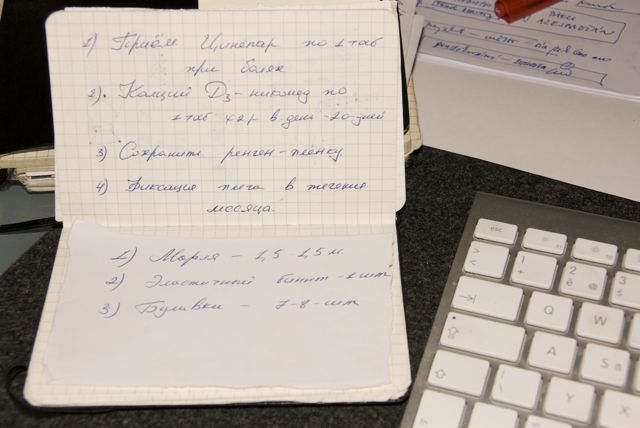 1) Приём Цинепар по 1 таб
при болях
2). Кальций D3-никомед по
1 таб x2р в день -20-дней
3) Сохранить ренген-плёнку.
4) Фиксация плеча в течения
месяца.
1) Марля - 1,5-1,5 м.
2) Эластичный бинт - 1 шт
3) Булавки - 7-8-шт
BAKU
AZERBAIJAN
esc
>
<
1
+
2
Q
W
A
S
Y
X